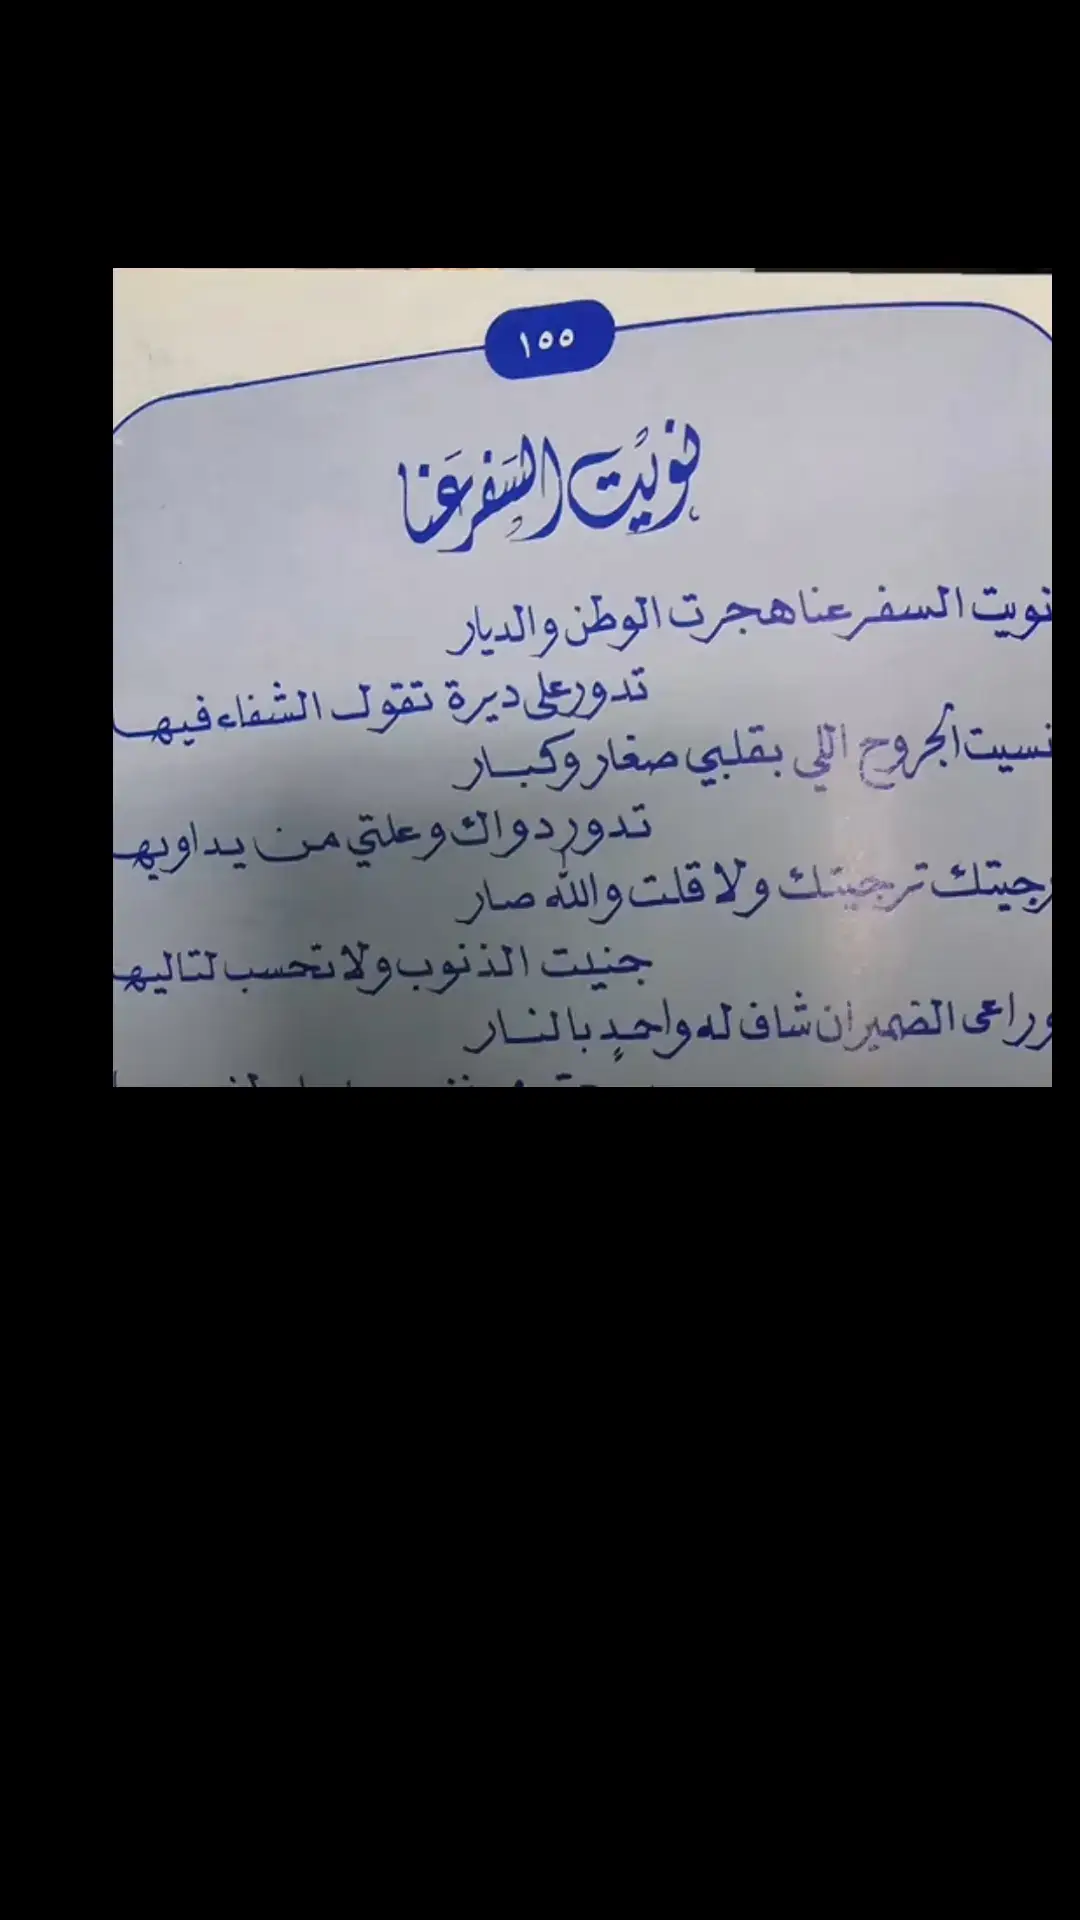 ١٥٥
نويت السفر عنا
نويت السفر عنا هجرت الوطن والديار
تدور على ديرة تقول الشفاء فيها
نسيت الجروح اللي بقلبي صغار وكبار
تدور دواك وعلتي من يداويها
رجيتك ترجيتك ولا قلت والله صار
جنيت الذنوب ولا تحسب لتاليها
وراعى الضمير ان شاف له واحدٍ بالنار